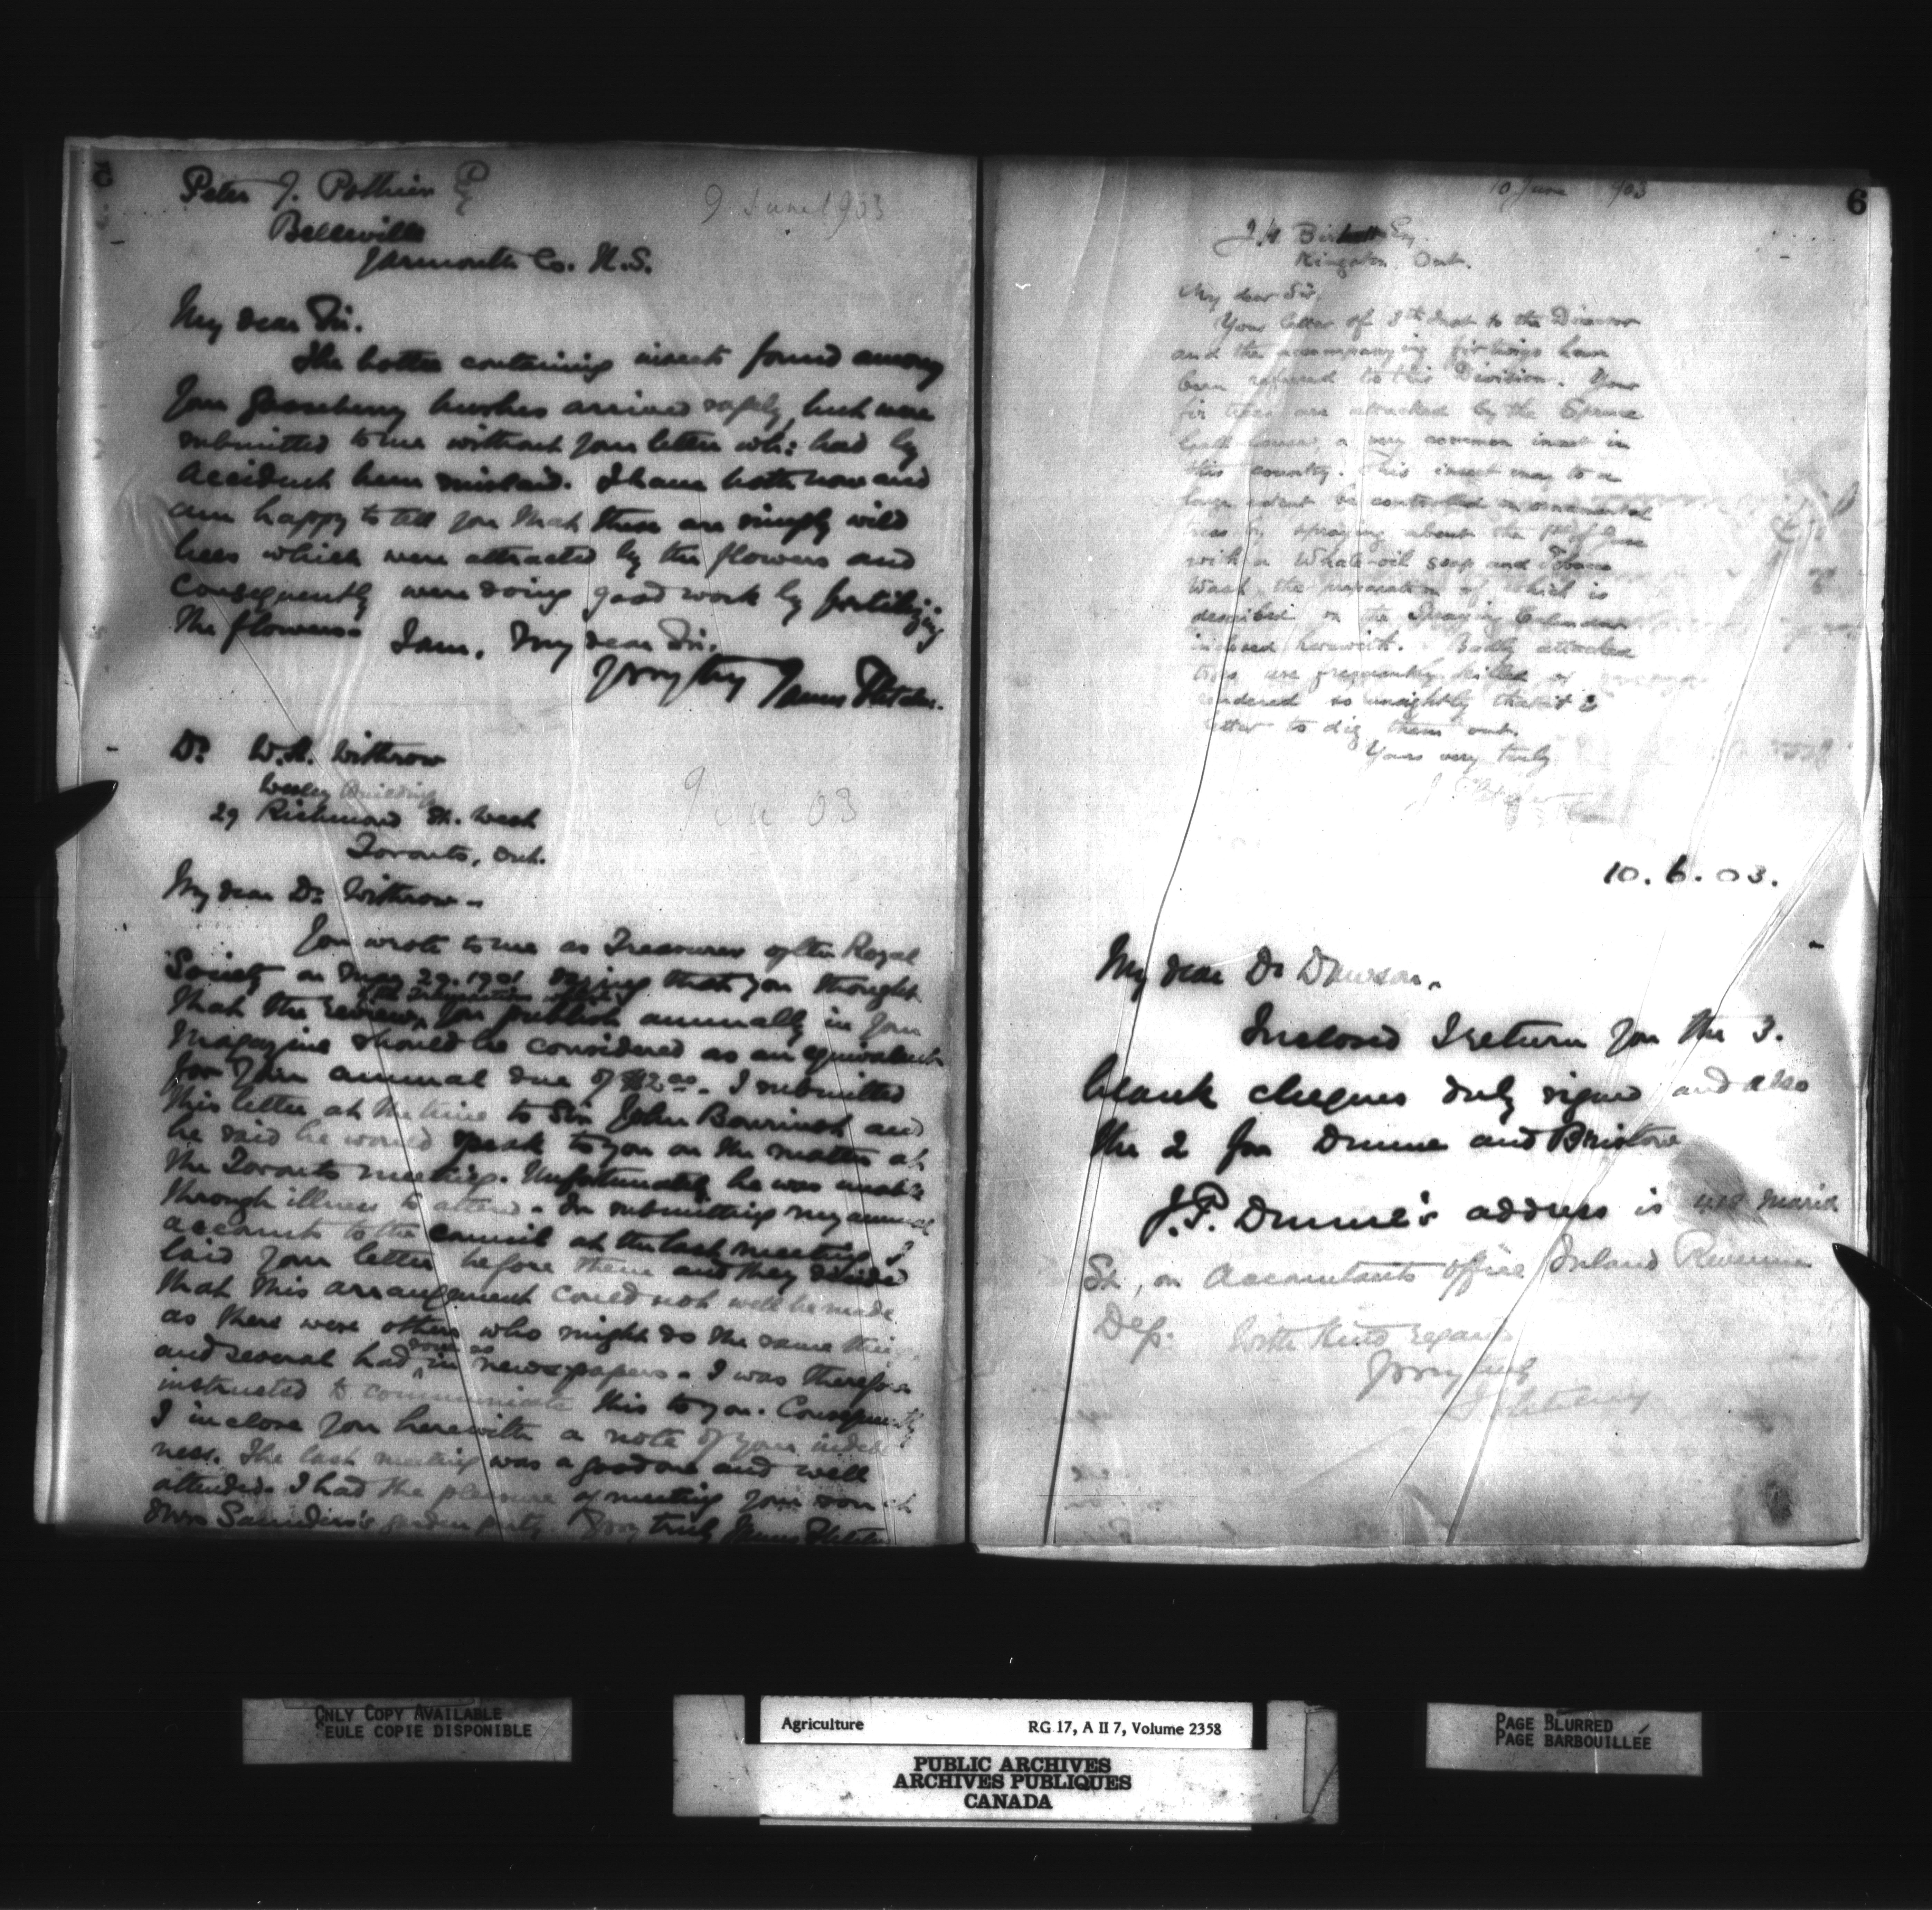 5
Peter J. Pothier Esq
9 June 1903
Belleville
Yarmouth Co. N.S.
My dear Sir.
The bottle containing insects found among
your gooseberry bushes arrived safely but were
submitted to me without your letter wh: had by
accident been mislaid. I have both now and
am happy to tell you that these are simply wild
bees which were attracted by the flowers and
consequently were doing good work by fertilizing
the flowers.
I am, my dear Sir.
Yrs vry try James Fletcher.
Dr. W.H. Withrow
Wesley Buildings
29 Richmond St. West
Toronto, Ont.
9 03
My dear Dr. Withrow -
You wrote to me as Treasurer of the Royal
Society on 29. 1901 saying that you thought
that the reviews you publish annually in your
Magazine should be considered as an equivalent
for your annual due of $2.00. I submitted
this letter at the time to Sir John Bourinot and
he said he would speak to you on the matter at
the Toronto meeting. Unfortunately he was unable
through illness to attend. In submitting my annual
accounts to the Council at the last meeting I
laid your letter before them and they decided
that this arrangement could not well be made
as there were others who might do the same thing
and several had done so in newspapers. I was therefore
instructed to communicate this to you. Consequently
I inclose you herewith a note of your indebted
ness. The last meeting was a good one and well
attended. I had the pleasure of meeting your son at
Mrs Saunders's garden party Yrs vry truly James Fletcher
6
10 June 1903
J.H. Esq.
Kingston, Ont.
My dear Sir,
Your letter of 8th inst to the Director
and the accompanying fir twigs have
been referred to this Division. Your
fir trees are attacked by the Spruce
Gall-louse, a very common insect in
this country. This insect may to a
large extent be controlled on ornamental
trees by spraying about the 1st of June
with a Whale-oil soap and Tobacco
Wash, the preparation of which is
described in the Spraying Calendar
inclosed herewith. Badly attacked
trees are frequently killed or
rendered so unsightly that it is
better to dig them out.
Yours very truly
J. Fletcher
10. 6. 03.
My dear Dr Dawson,
Inclosed I return you the 3.
blank cheques duly signed and also
the 2 for Dunne and Bristow
J.P. Dunne's address is 418 Maria
St, or Accountants office Inland Revenue
Dep.
With kind regards
Yrs vry truly
J Fletcher
ONLY COPY AVAILABLE
SEULE COPIE DISPONIBLE
Agriculture RG 17, A II 7, Volume 2358
PUBLIC ARCHIVES
ARCHIVES PUBLIQUES
CANADA
PAGE BLURRED
PAGE BARBOUILLÉE